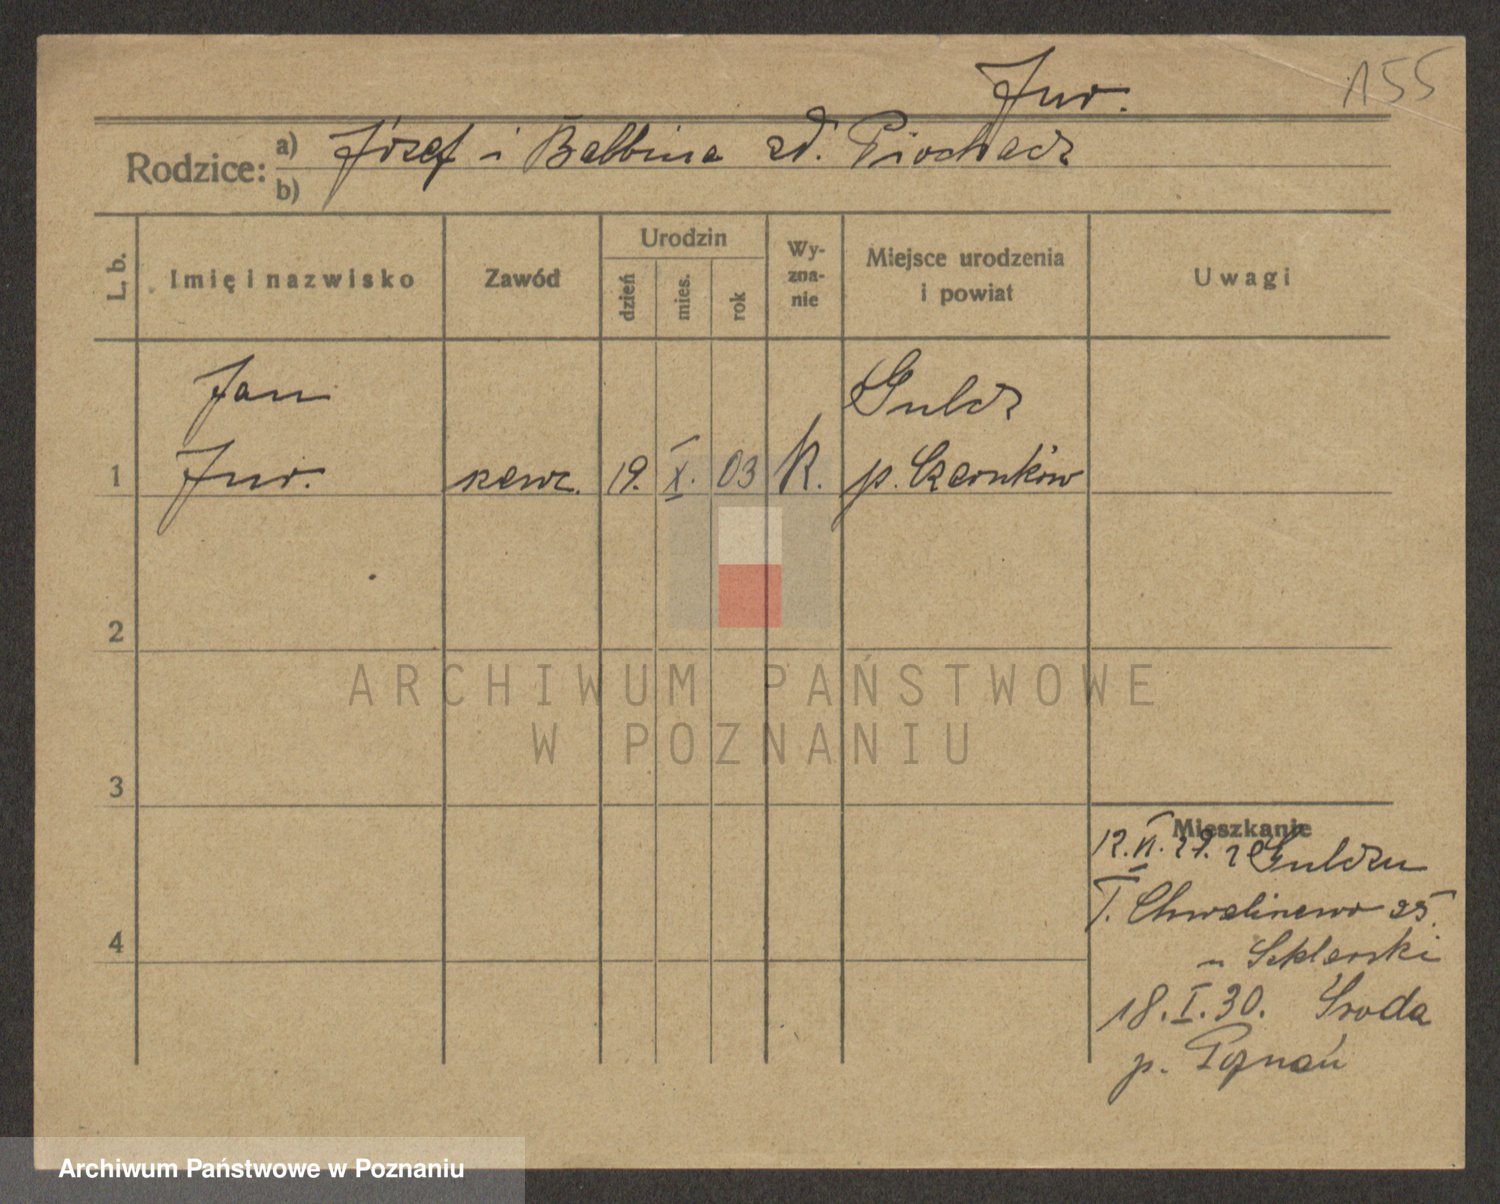 155
Jur.
Rodzice: a) Józef i Balbina zd. Piochacz
b)
L. b.
Imię i nazwisko
Zawód
Urodzin
dzień
mies.
rok
Wy-
zna-
nie
Miejsce urodzenia
i powiat
Uwagi
Jan
Gulcz
1 Jur. 19. X. 03 K. p. Czarnków
2
3
4
Mieszkanie
12.VI.29. z Gulczu
T. Chwaliszewo 25.
u Szklarski
18.I.30. Środa
p. Poznań
ARCHIWUM PAŃSTWOWE
W POZNANIU
Archiwum Państwowe w Poznaniu